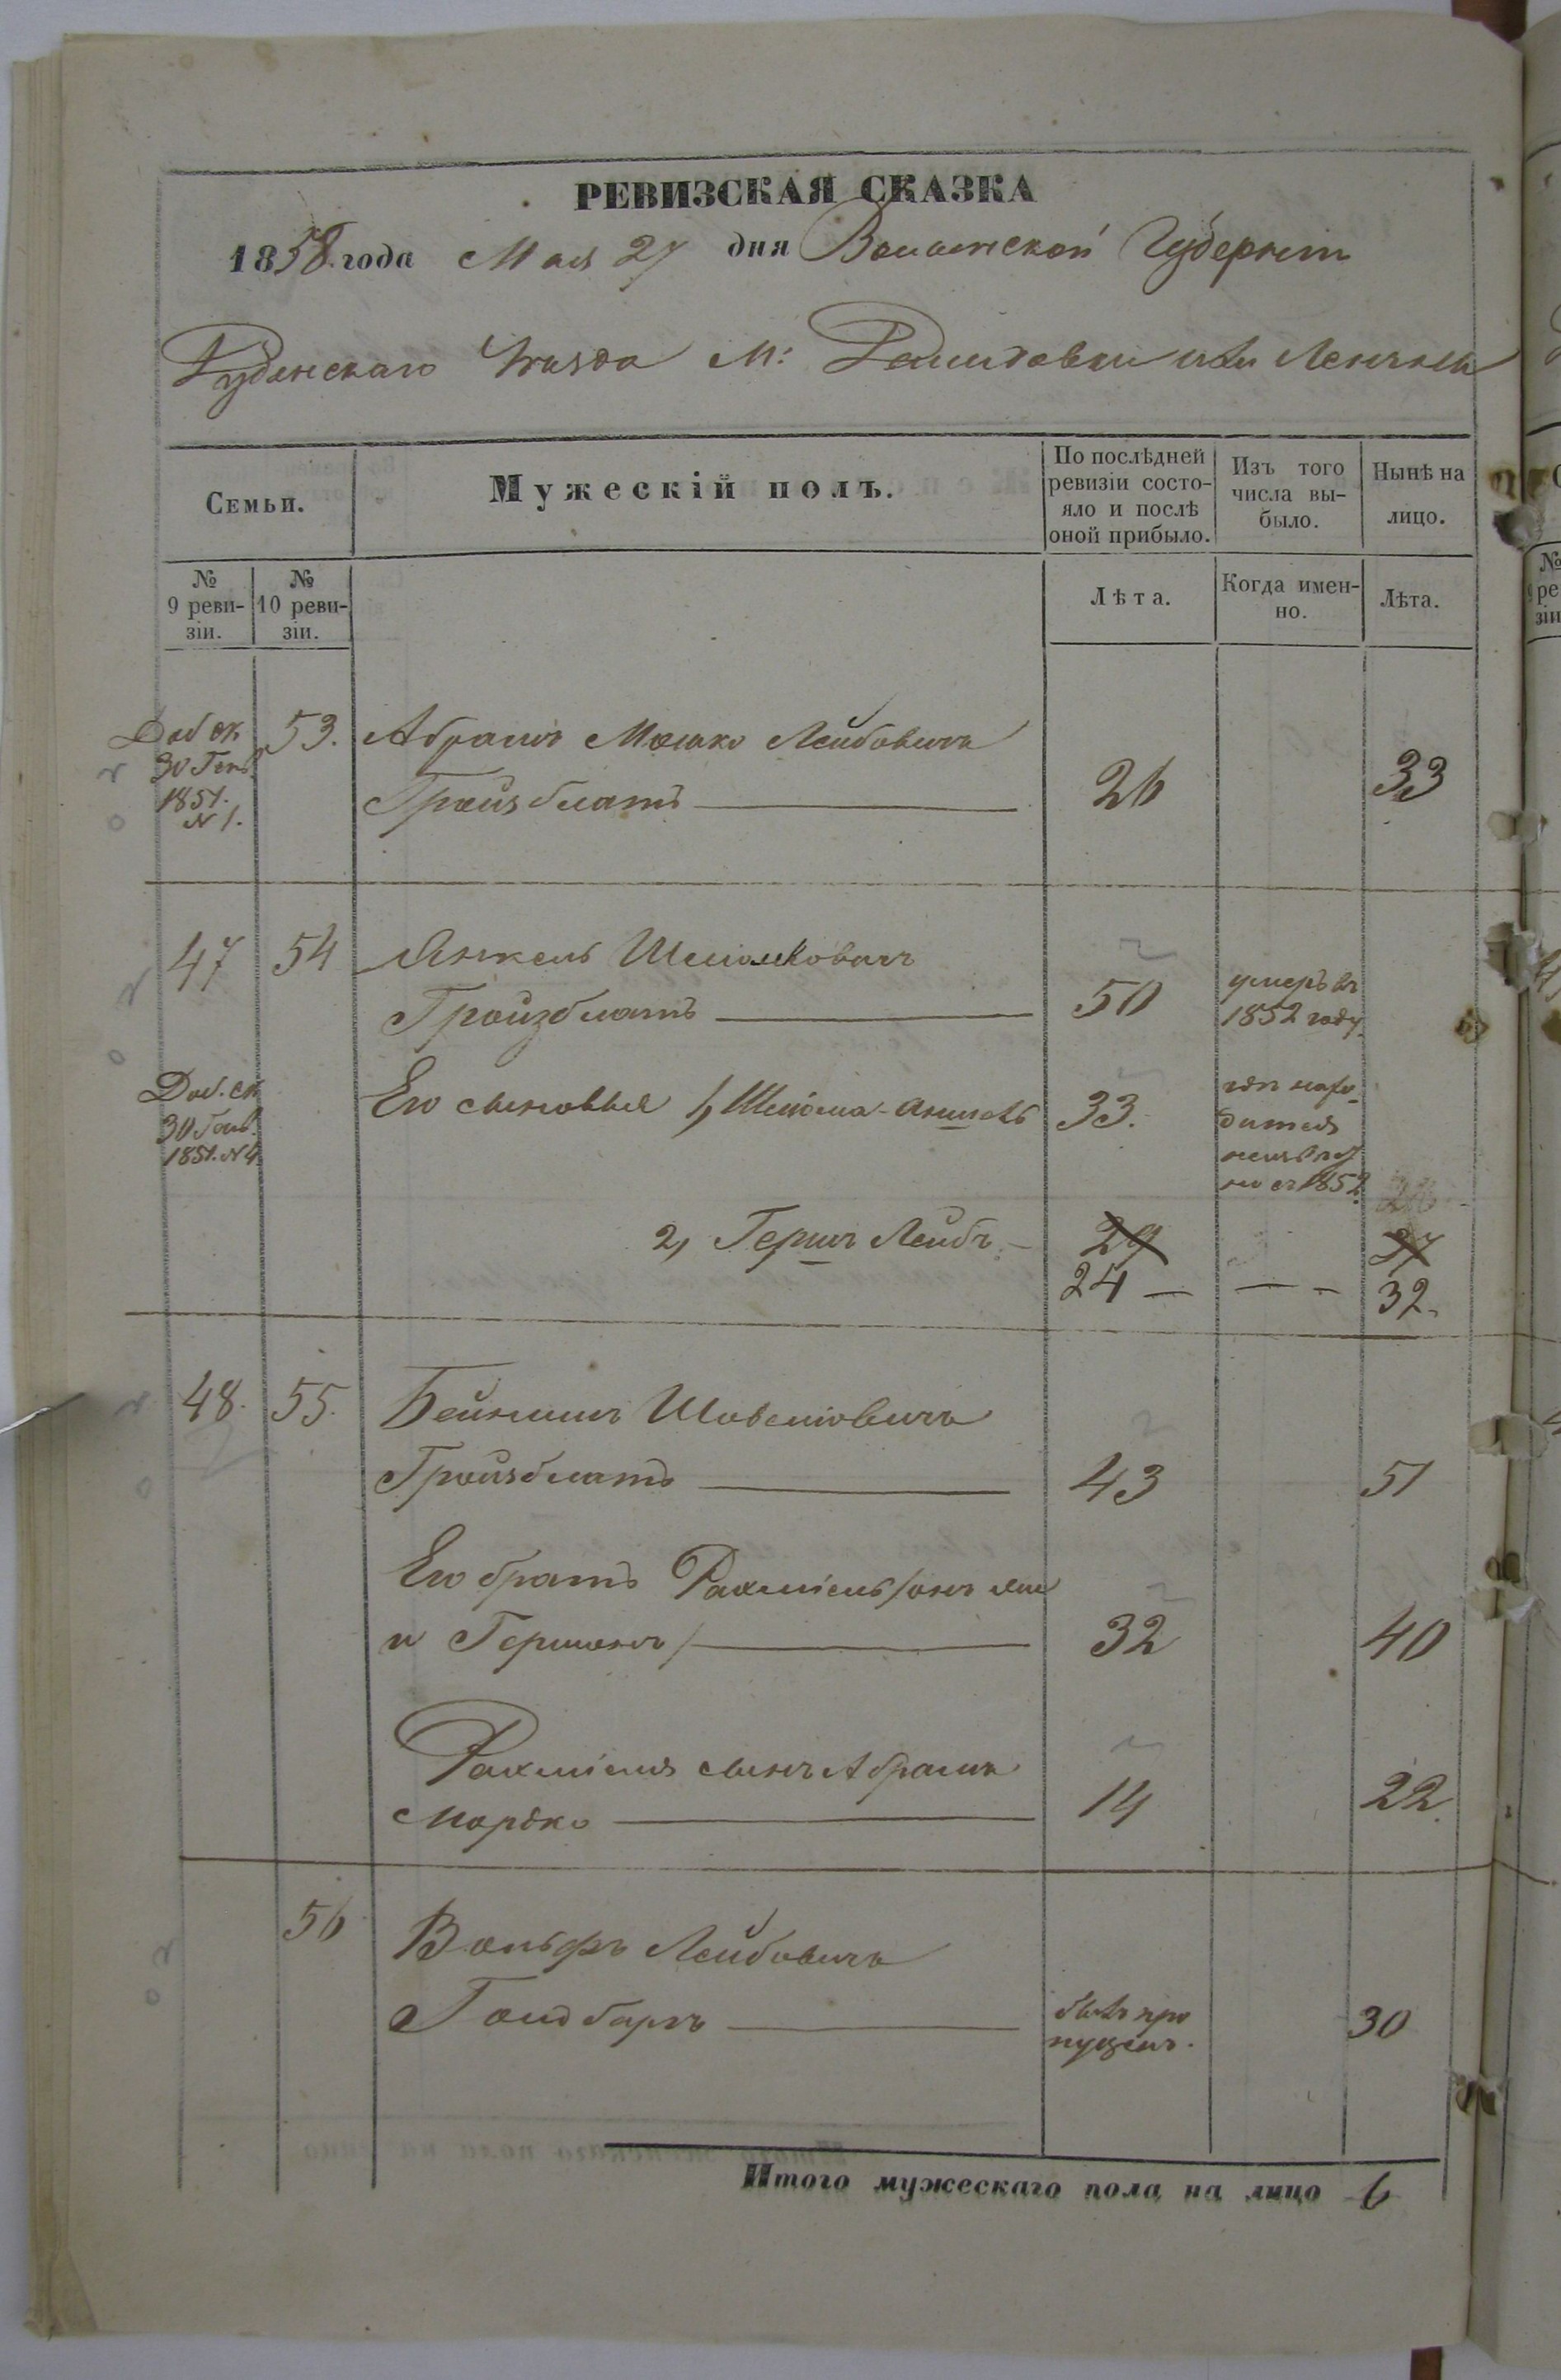 РЕВИЗСКАЯ СКАЗКА
1858 года Мая 27 дня Волынской Губерніи
Ровенскаго Уѣзда М:
Семьи.
Мужескій полъ.
По послѣдней ревизіи состо-
яло и послѣ оной прибыло.
Изъ того числа вы-
было.
Нынѣ на лицо.
№ 9 реви-
зіи.
№ 10 реви-
зіи.
Лѣта.
Когда имен-
но.
Лѣта.
Доб. ск. 53. Абрамъ Мошко Лейбовичъ
30 Генв.
1851.
N 1.
Гройзблатъ 26 33
47 54 Янкель Шліомковичъ
Гройзблатъ 50 умеръ въ
1852 году.
Доб. ск.
30 Генв.
1851. N 4.
Его сыновья 1, Шліома- 33. гдѣ нахо-
дится
неизвѣст
но съ 1852.
2, Гершъ Лейбъ 29 37
24 — — - 32.
48. 55. Бейнишъ Шовеліовичъ
Гройзблатъ 43 51
Его братъ Рахміель /онъ же
и Гершонъ/ 32 40
Рахміеля сынъ Абрамъ
Мордко 14 22
56 Вольфъ Лейбовичъ
Голдбаргъ былъ про
пущенъ. 30
Итого мужескаго пола на лицо 6